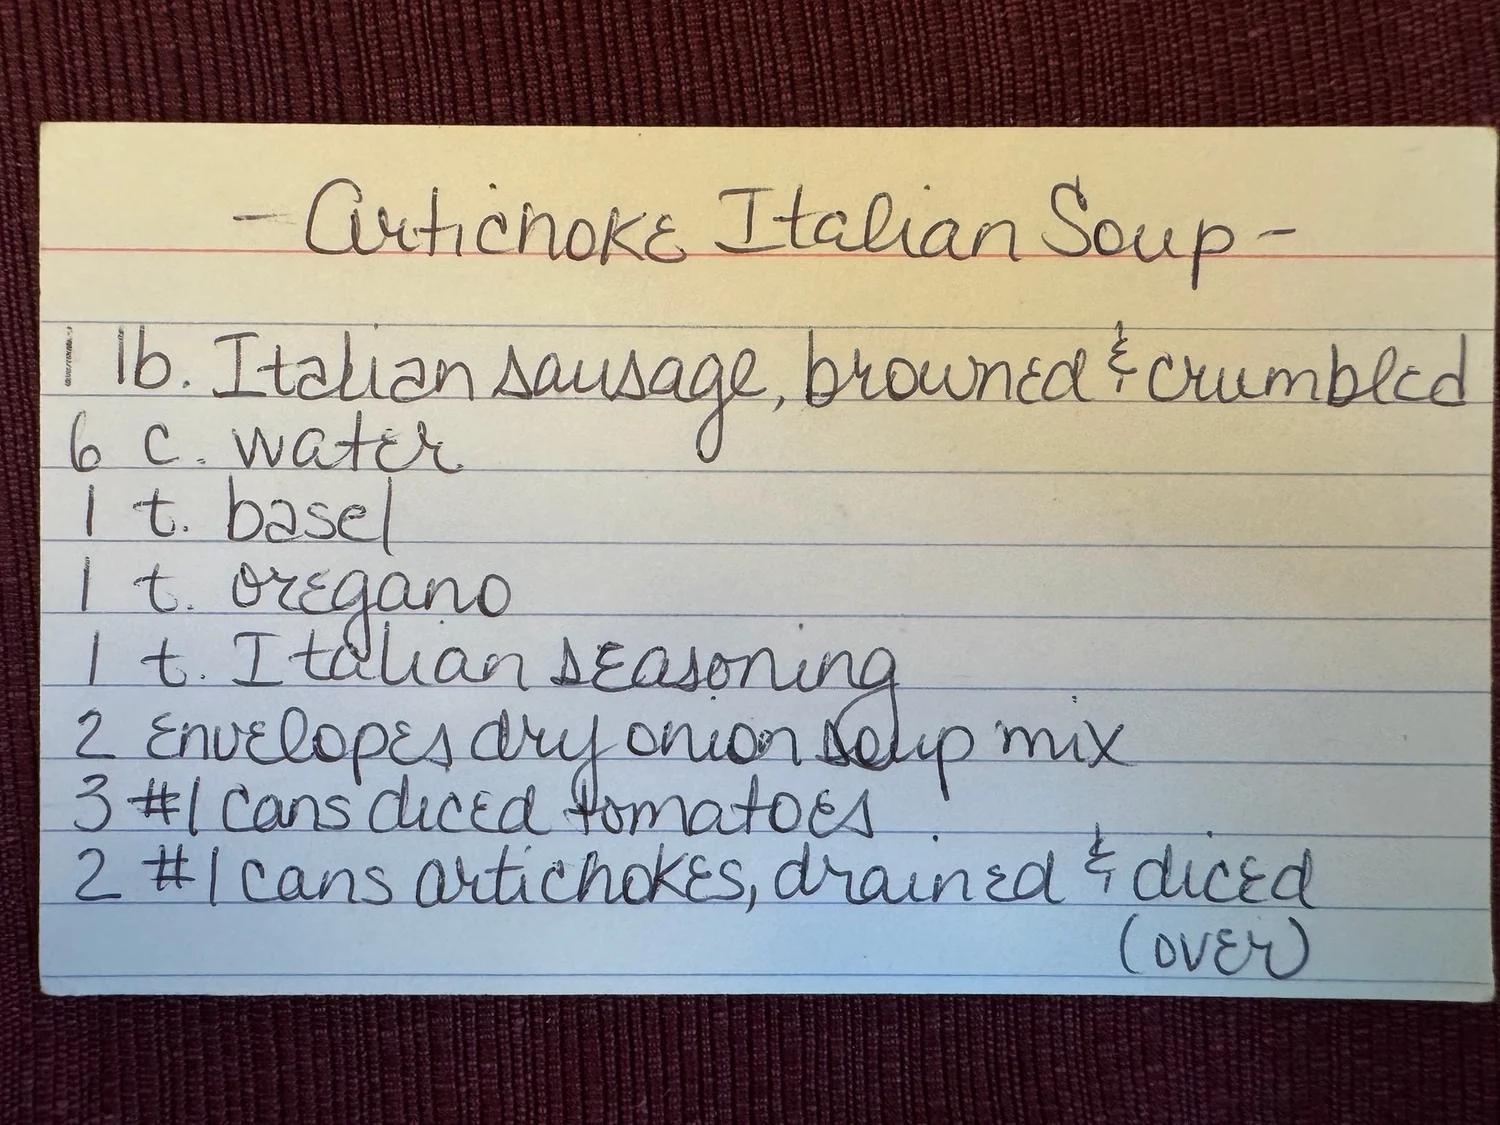 - Artichoke Italian Soup -
1 lb. Italian sausage, browned & crumbled
6 c. water
1 t. basel
1 t. oregano
1 t. Italian seasoning
2 envelopes dry onion soup mix
3 #1 cans diced tomatoes
2 #1 cans artichokes, drained & diced
(over)